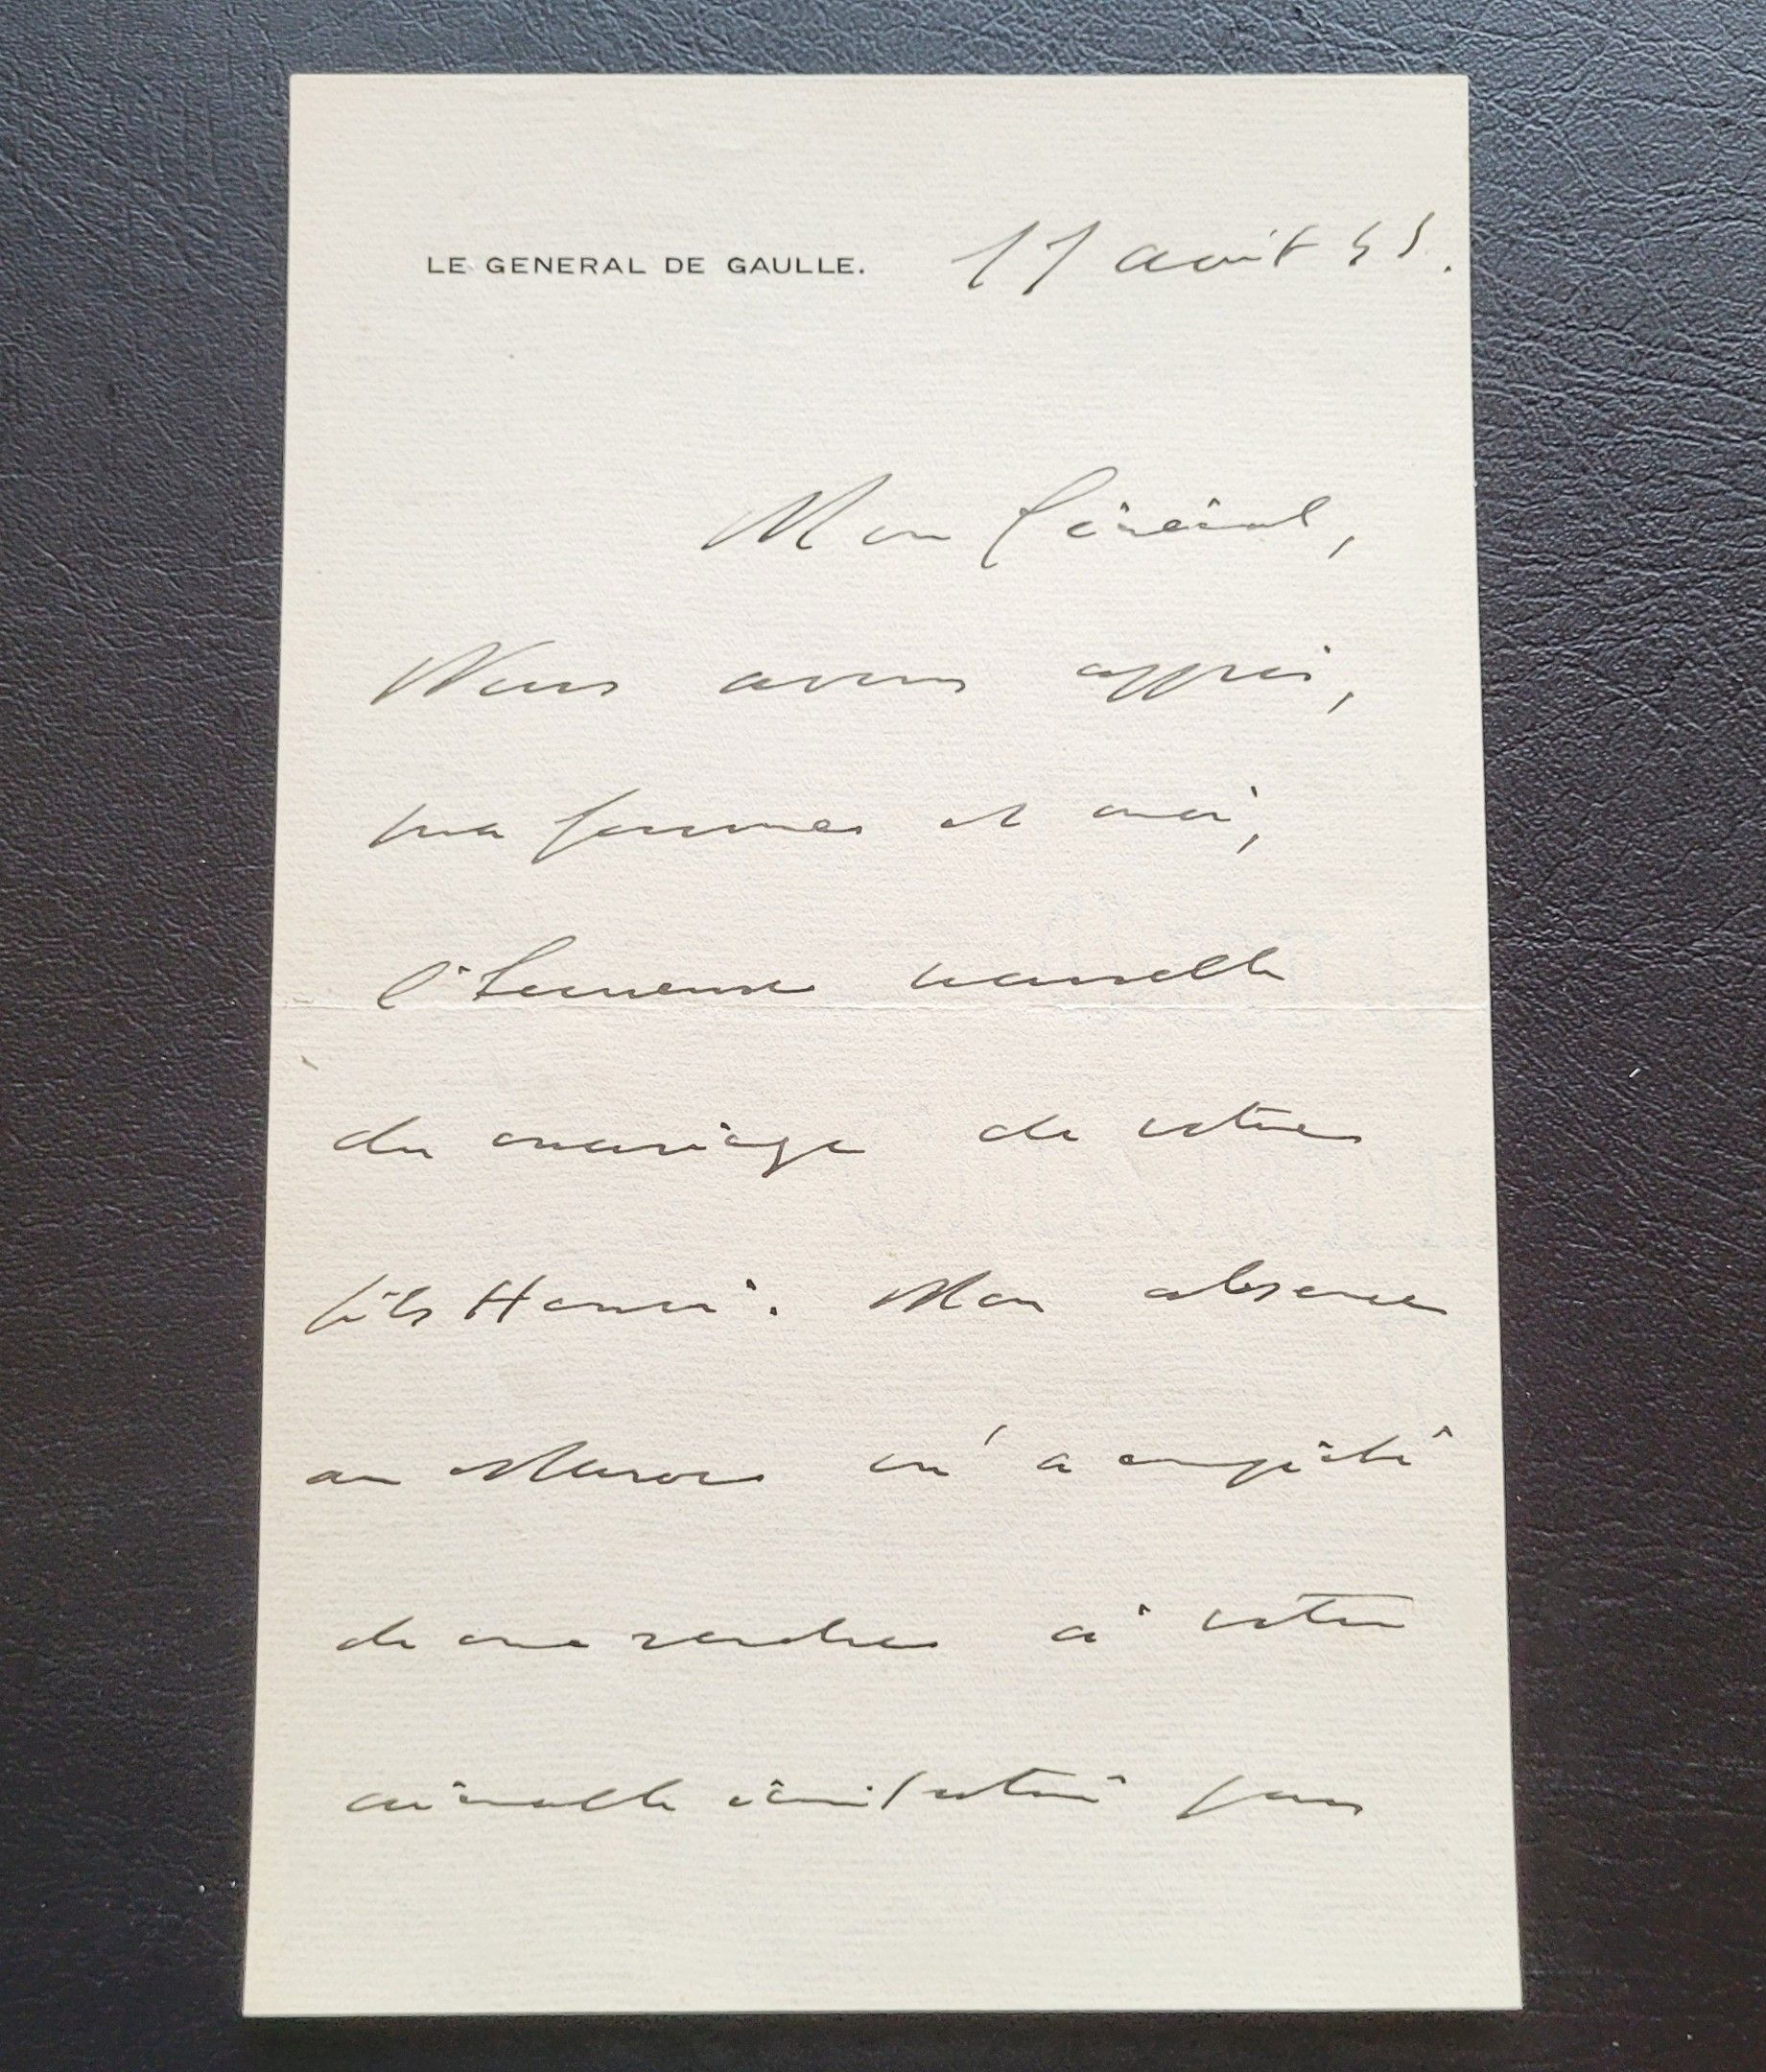 LE GENERAL DE GAULLE. août
Mon Général,
Nous avons appris,
ma femme et moi,
l'heureuse nouvelle
du mariage de votre
fils Henri. Mon absence
au Maroc m'a empêché
de me rendre à votre
invitation pour